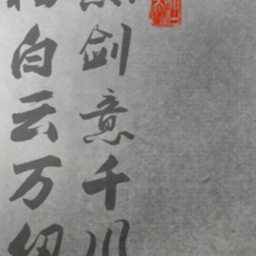 剑意千川
白云万仞